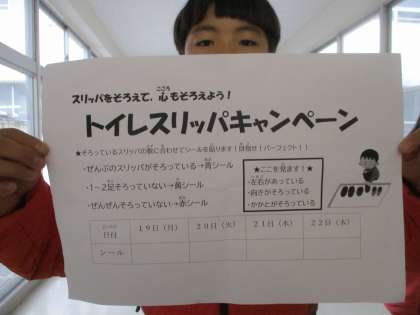 スリッパをそろえて、心もそろえよう！
トイレスリッパキャンペーン
★そろっているスリッパの数に合わせてシールを貼ります！目指せ！パーフェクト！！
・ぜんぶのスリッパがそろっている→青シール
・1～2足そろっていない→黄シール
・ぜんぜんそろっていない→赤シール
★ここを見ます！★
・左右があっている
・向きがそろっている
・かかとがそろっている
日付 19日（月） 20日（火） 21日（水） 22日（木）
シール